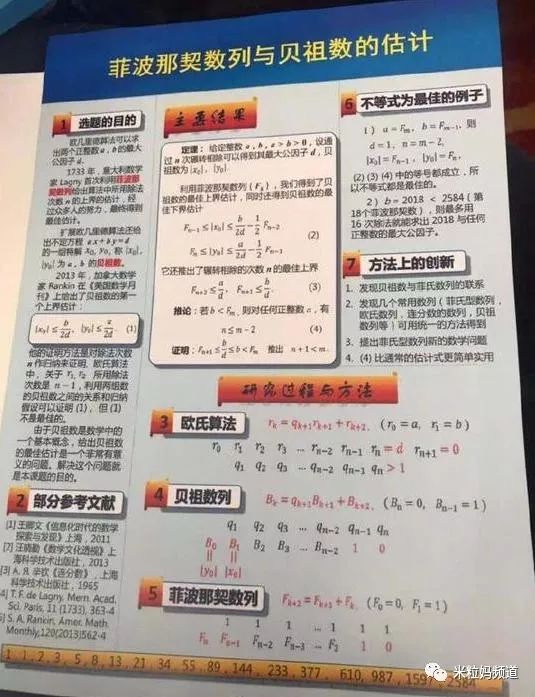 菲波那契数列与贝祖数的估计
1 选题的目的
欧几里德算法可以求
出两个正整数 a, b 的最大
公因子 d.
1733 年，意大利数学
家 Lagny 首次利用菲波那
契数列给出算法中所用除法
次数 n 的上界的估计，经
过众多人的努力，最终得到
最佳估计。
扩展欧几里德算法还给
出不定方程 ax + by = d
的一组特解 x₀, y₀, 称 |x₀|,
|y₀| 为 a, b 的贝祖数。
2013 年，加拿大数学
家 Rankin 在《美国数学月
刊》上给出了贝祖数的第一
个上界估计：
|x₀| ≤ b/2d, |y₀| ≤ a/2d. (1)
他的证明方法是对除法次数
n 作归纳来证明. 欧氏算法
中，关于 r₁, r₂ 所用除法
次数是 n − 1，利用两组数
的贝祖数之间的关系和归纳
假设可以证明 (1)，但 (1)
不是最佳的。
由于贝祖数是数学中的
一个基本概念，给出贝祖数
的最佳估计是一个非常有意
义的问题。解决这个问题就
是本课题的目的。
2 部分参考文献
[1] 王卿文《信息化时代的数学
探索与发现》上海，2011
[2] 汪晓勤《数学文化透视》上
海科学技术出版社，2013
[3] А. Я. 辛钦《连分数》，上海
科学技术出版社，1965
4] T. F. de Lagny, Mem. Acad.
Sci. Paris, 11 (1733), 363-4
5] S. A. Rankin, Amer. Math.
Monthly, 120(2013)562-4
主要结果
定理：给定整数 a, b, a > b > 0, 设通
过 n 次辗转相除可以得到其最大公因子 d, 贝
祖数为 |x₀|, |y₀|.
利用菲波那契数列 (Fₖ)，我们得到了贝
祖数的最佳上界估计，同时还得到贝祖数的最
佳下界估计
Fₙ₋₁ ≤ |x₀| ≤ b/2d − 1/2 Fₙ₋₂
(2)
Fₙ ≤ |y₀| ≤ a/2d − 1/2 Fₙ₋₁
它还推出了辗转相除的次数 n 的最佳上界
Fₙ₊₂ ≤ a/d, Fₙ₊₁ ≤ b/d. (3)
推论：若 b < Fₘ, 则对任何正整数 a, 有
n ≤ m − 2 (4)
证明：Fₙ₊₁ ≤ b/d ≤ b < Fₘ 推出 n + 1 < m.
6 不等式为最佳的例子
1) a = Fₘ, b = Fₘ₋₁, 则
d = 1, n = m − 2,
|x₀| = Fₙ₋₁, |y₀| = Fₙ.
(2) (3) (4) 中的等号都成立，所
以不等式都是最佳的。
2) b = 2018 < 2584 (第
18个菲波那契数)，则最多用
16 次除法就能求出 2018 与任何
正整数的最大公因子。
7 方法上的创新
1. 发现贝祖数与菲氏数列的联系
2. 发现几个常用数列（菲氏型数列，
欧氏数列，连分数的数列，贝祖
数列等）可用统一的方法得到
3. 提出菲氏型数列新的数学问题
4. (4) 比通常的估计式更简单实用
研究过程与方法
3 欧氏算法 rₖ = qₖ₊₁rₖ₊₁ + rₖ₊₂, (r₀ = a, r₁ = b)
r₀ r₁ r₂ r₃ ... rₙ₋₂ rₙ₋₁ rₙ = d rₙ₊₁ = 0
q₁ q₂ q₃ ... qₙ₋₂ qₙ₋₁ qₙ > 1
4 贝祖数列 Bₖ = qₖ₊₁Bₖ₊₁ + Bₖ₊₂, (Bₙ = 0, Bₙ₋₁ = 1)
q₁ q₂ q₃ ... qₙ₋₂ qₙ₋₁ qₙ
B₀ B₁ B₂ B₃ ... Bₙ₋₂ 1 0
|| ||
|y₀| |x₀|
5 菲波那契数列 Fₖ₊₂ = Fₖ₊₁ + Fₖ, (F₀ = 0, F₁ = 1)
1 1 1 ... 1 1 1
Fₙ Fₙ₋₁ Fₙ₋₂ Fₙ₋₃ ... F₂ 1 0
1, 1, 2, 3, 5, 8, 13, 21, 34, 55, 89, 144, 233, 377, 610, 987, 1597, 2584
米粒妈频道